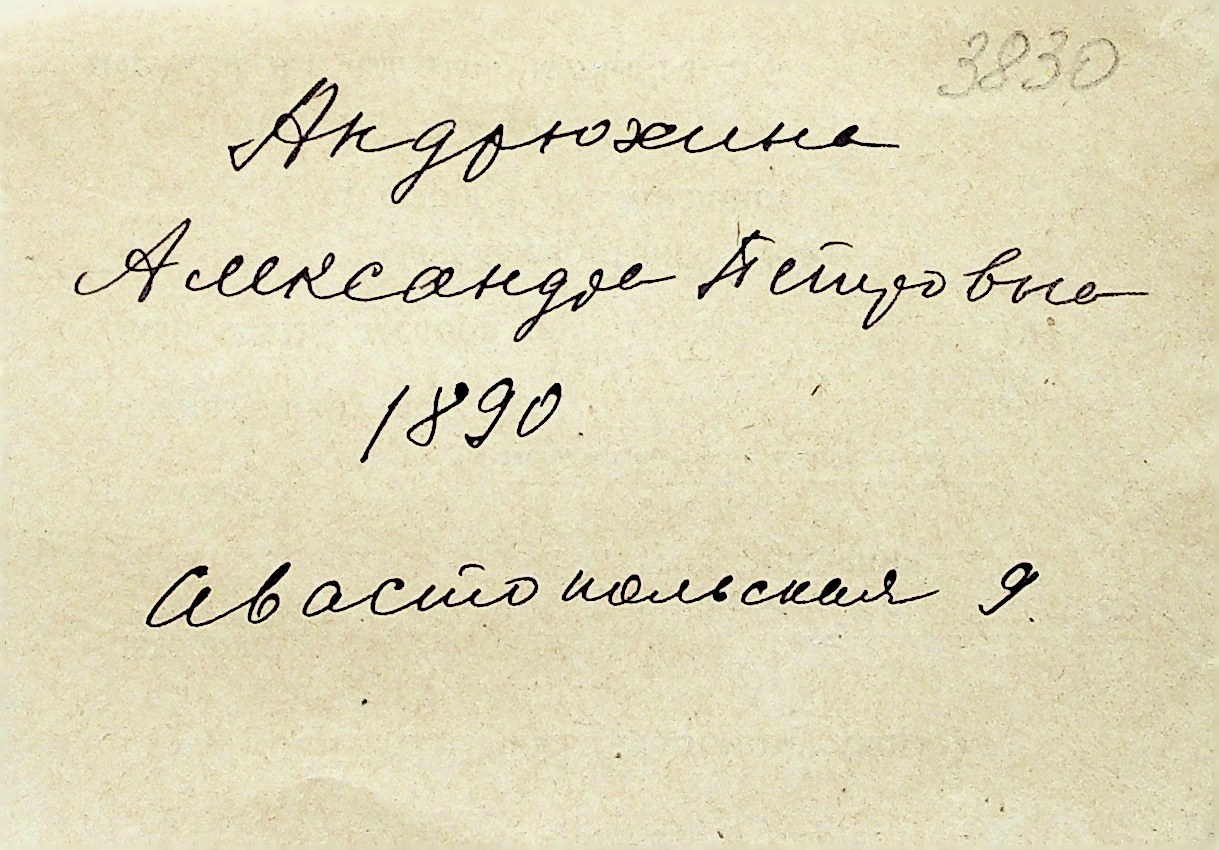 3830
Андрюхина
Александра Петровна
1890
Севастопольская 9